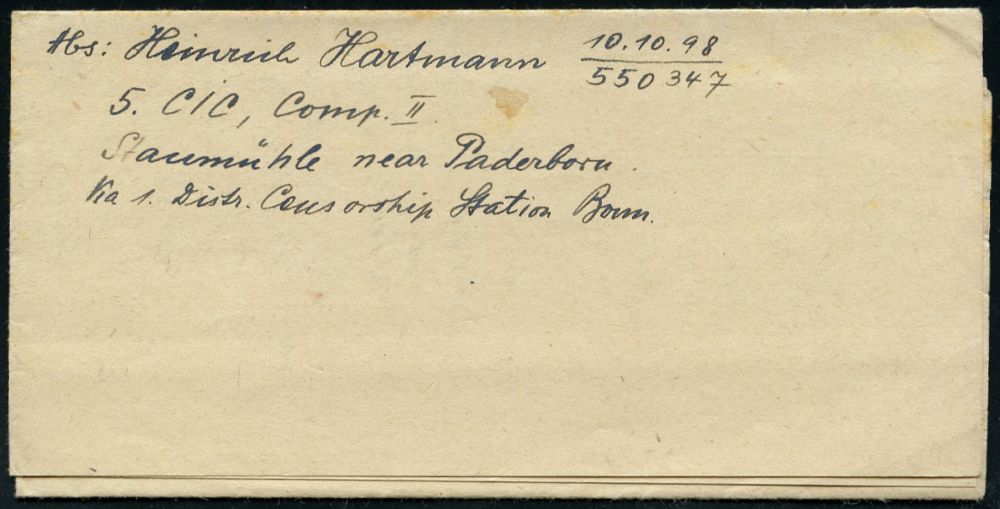 Abs: Heinrich Hartmann 10.10.98
550347
5. CIC, Comp. II.
Staumühle near Paderborn.
Via 1. Distr. Censorship Station Bonn.